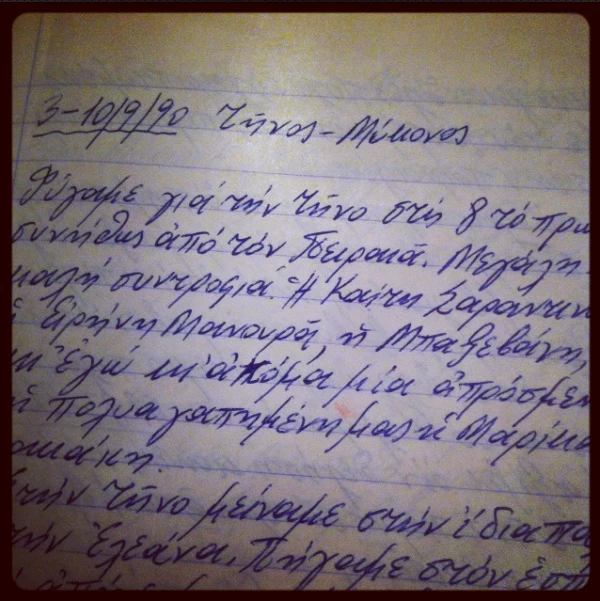 3-10/9/90 Τῆνος-Μύκονος
Φύγαμε γιά τήν Τῆνο στίς 8 τό πρω
συνήθως ἀπό τόν Πειραιᾶ. Μεγάλη
καλή συντροφιά. Ἡ Καίτη Σαραντιν
ἡ Εἰρήνη Μανουρᾶ, ἡ Μπαξεβάνη,
κι' ἐγώ κι' ἀκόμα μία ἀπρόσμεν
ἡ πολυαγαπημένη μας ἡ Μαρίκα
στήν Τῆνο μείναμε στήν ἴδια πα
τήν Ἐλεάνα. Πήγαμε στόν ἑσπ